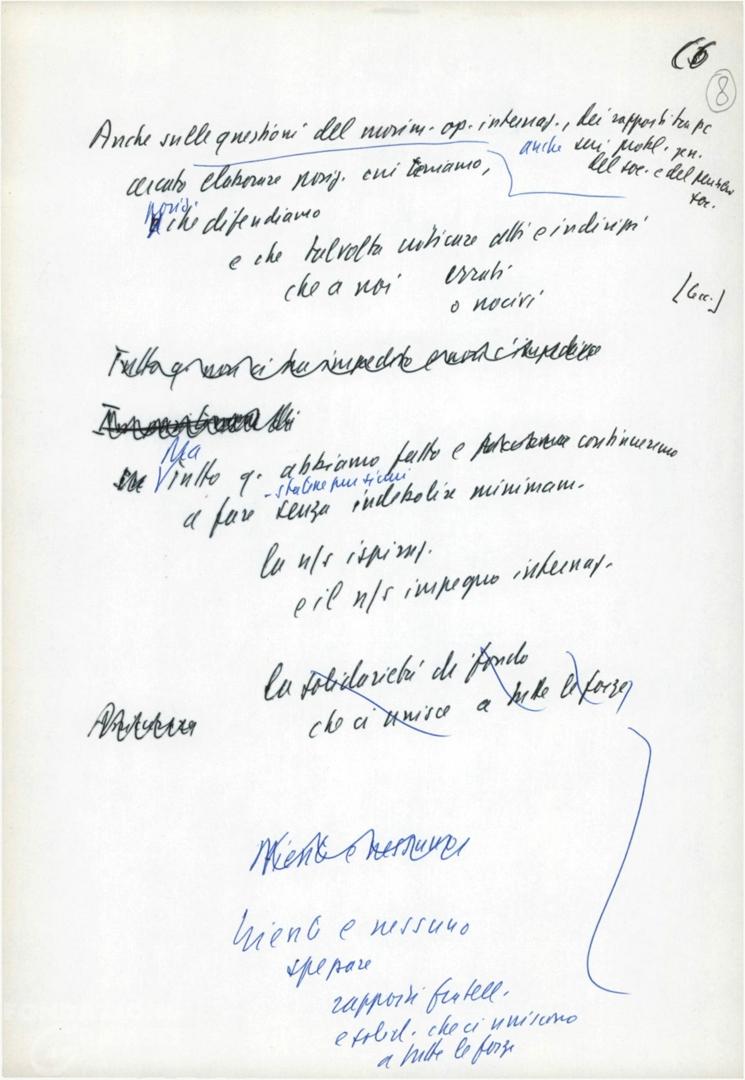 66
8
Anche sulle questioni del movim. op. internaz., dei rapporti tra pc
anche sui probl. gen.
del soc. e del pensiero
soc.
cercato elaborare posiz. cui teniamo,
posiz.
che difendiamo
e che talvolta criticare atti e indirizzi
che a noi errati
o nocivi
Tutto q. non ci ha impedito e non ci impedisce
Ma
tutto q. abbiamo fatto e continueremo
a fare senza indebolire minimam.
la n/s ispiraz.
e il n/s impegno internaz.
la solidarietà di fondo
che ci unisce a tutte le forze
Niente e nessuno
Niente e nessuno
spezzare
rapporti fratell.
e solid. che ci uniscono
a tutte le forze
FONDAZIONE